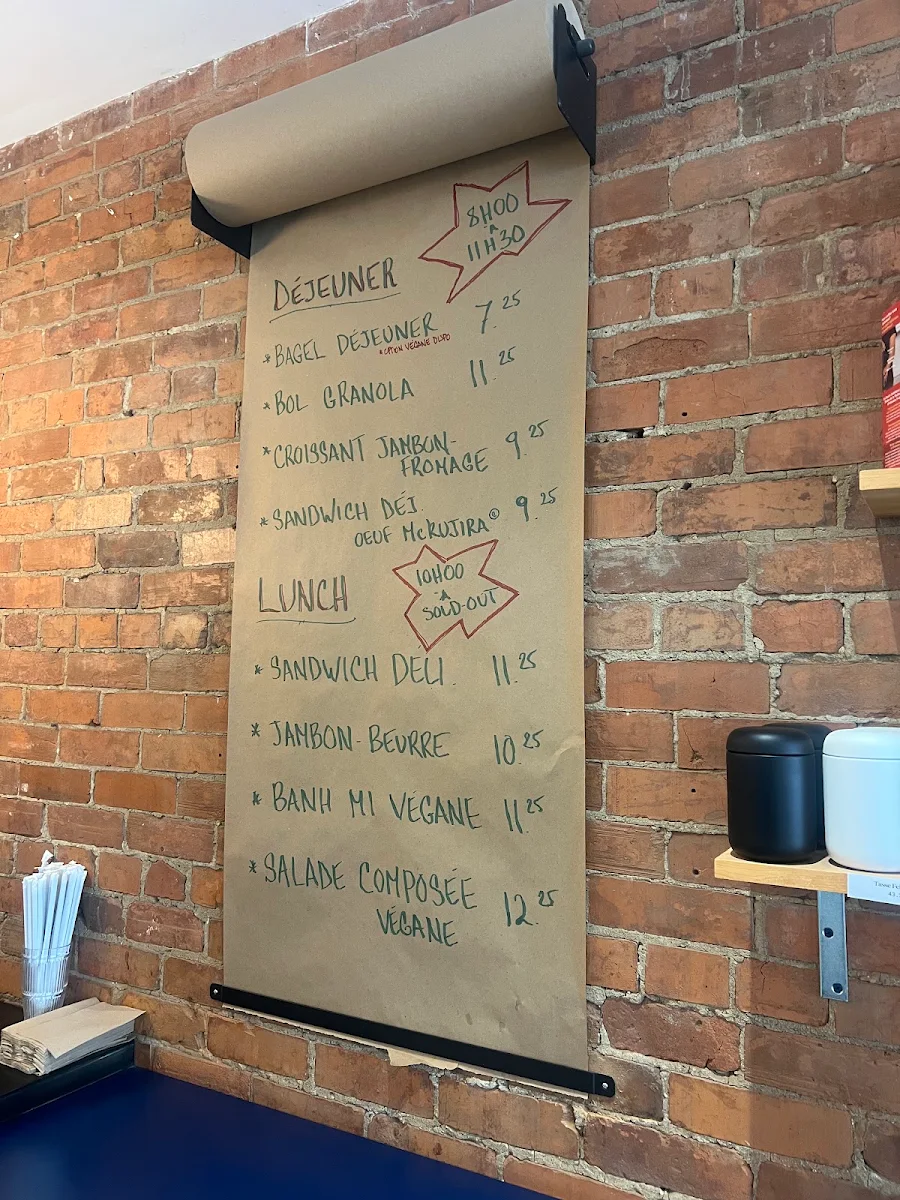 8H00
À
11H30
DÉJEUNER
*BAGEL DÉJEUNER 7.25
*OPTION VÉGANE DISPO
*BOL GRANOLA 11.25
*CROISSANT JAMBON-
FROMAGE 9.25
*SANDWICH DÉJ.
OEUF McRUJIRA® 9.25
LUNCH
10H00
À
SOLD-OUT
*SANDWICH DELI. 11.25
*JAMBON-BEURRE 10.25
*BANH MI VÉGANE 11.25
*SALADE COMPOSÉE
VÉGANE 12.25